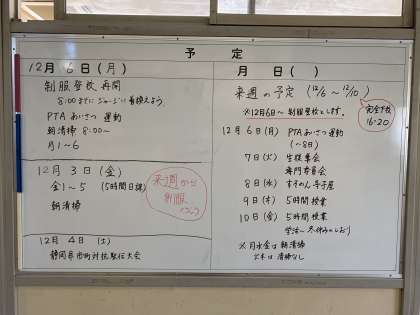 予 定
12月 6日(月)
制服登校 再開
8:00までに ジャージに 着換えよう.
PTA あいさつ 運動
朝清掃 8:00~
月1~6
12月 3日(金)
金1~5 (5時間日課)
朝清掃
来週から
制服
12月 4日 (土)
静岡県市町対抗駅伝大会
月 日( )
来週の予定 (12/6~12/10)
完全下校
16:20
※12月6日~ 制服登校とします。
12月 6日(月) PTAあいさつ運動
(~8日)
7日(火) 生徒集会
専門委員会
8日(水) すその寺子屋
9日(木) 5時間授業
10日(金) 5時間授業
学活~冬休みのしおり
※月水金は 朝清掃
火木は 清掃なし